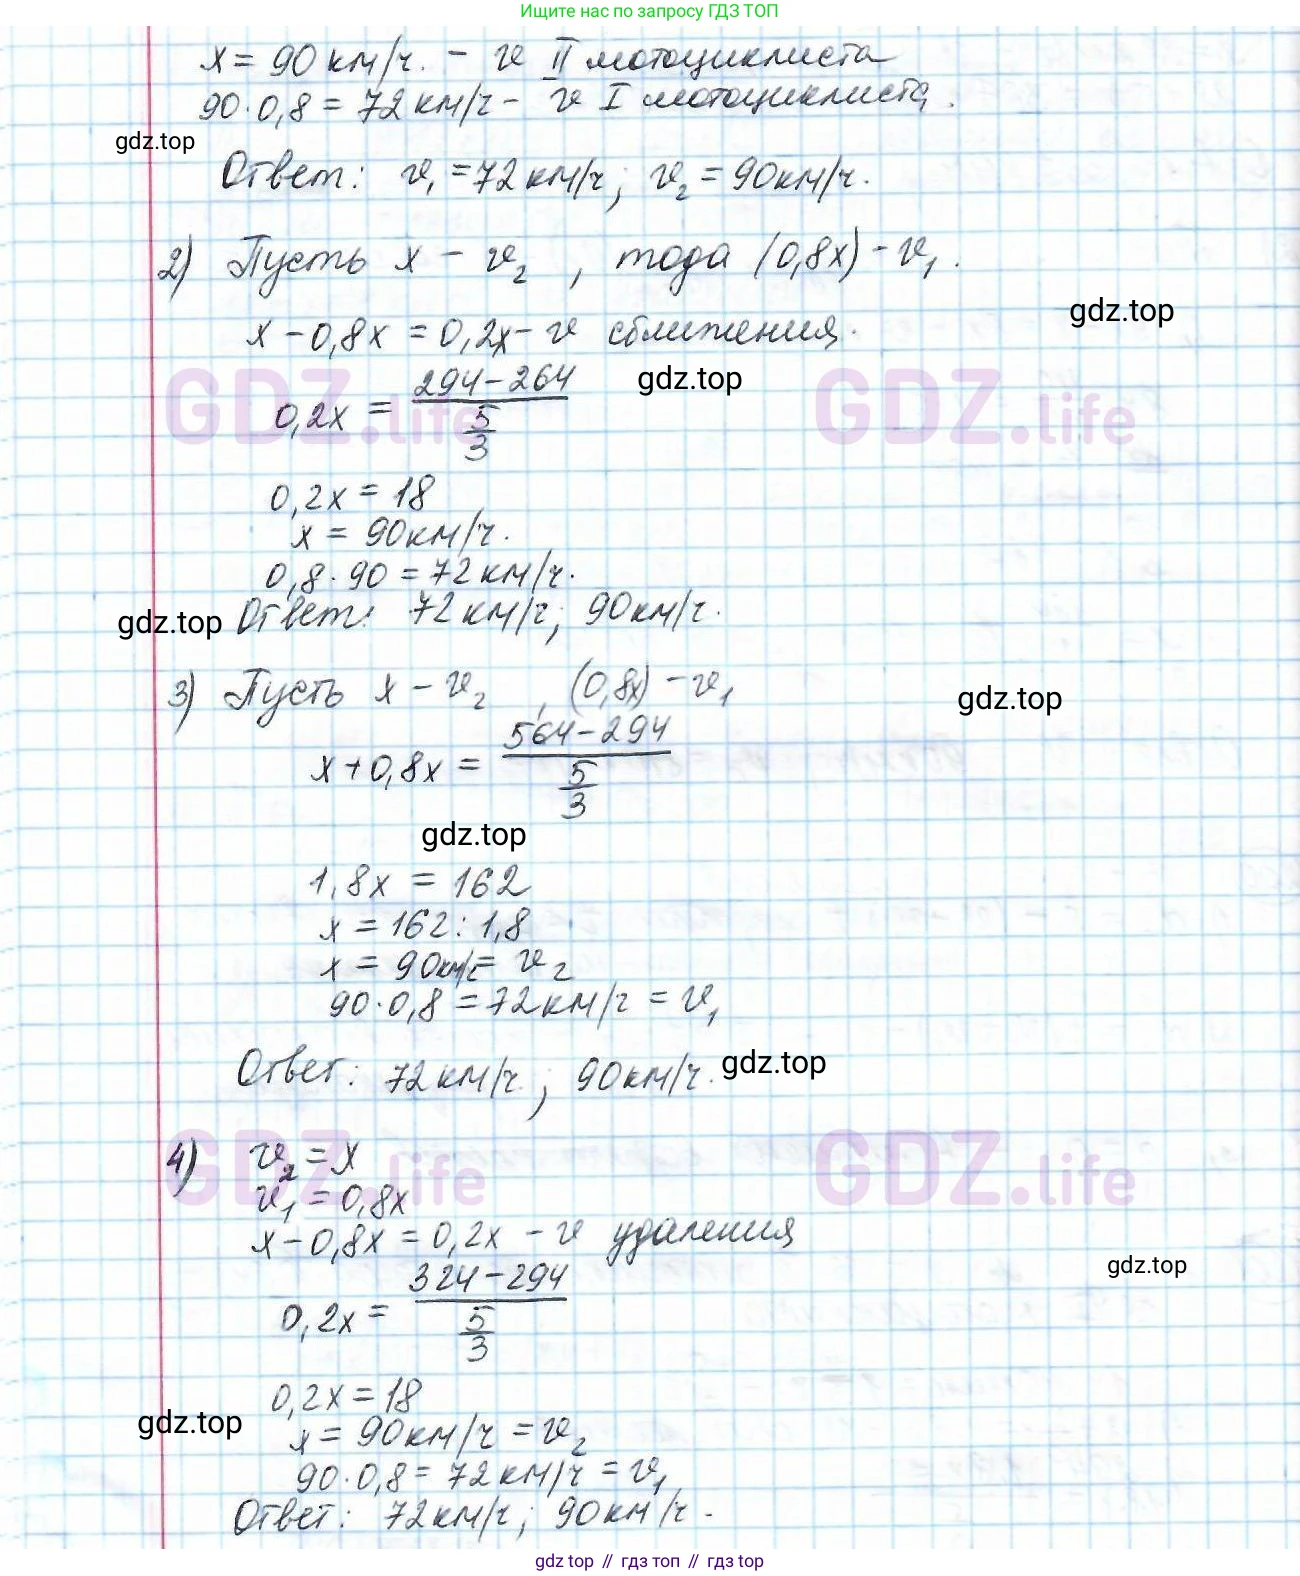 Ищите нас по запросу ГДЗ ТОП
x = 90 км/ч. – v II мотоциклиста
90·0,8 = 72 км/ч – v I мотоциклиста.
gdz.top
Ответ: v₁ = 72 км/ч; v₂ = 90 км/ч.
2) Пусть x – v₂, тода (0,8x) – v₁.
gdz.top
x – 0,8x = 0,2x – v сближения.
GDZ.life GDZ.life
0,2x = (294–264)/(5/3)
gdz.top
0,2x = 18
x = 90 км/ч.
0,8·90 = 72 км/ч.
gdz.top
Ответ: 72 км/ч; 90 км/ч.
3) Пусть x – v₂, (0,8x) – v₁
gdz.top
x + 0,8x = (564–294)/(5/3)
gdz.top
1,8x = 162
x = 162 : 1,8
x = 90 км/ч = v₂
90·0,8 = 72 км/ч = v₁
Ответ: 72 км/ч; 90 км/ч.
gdz.top
4) v₂ = x
GDZ.life GDZ.life
v₁ = 0,8x
x – 0,8x = 0,2x – v удаления
gdz.top
0,2x = (324–294)/(5/3)
0,2x = 18
gdz.top
x = 90 км/ч = v₂
90·0,8 = 72 км/ч = v₁
Ответ: 72 км/ч; 90 км/ч.
gdz top // гдз топ // гдз top